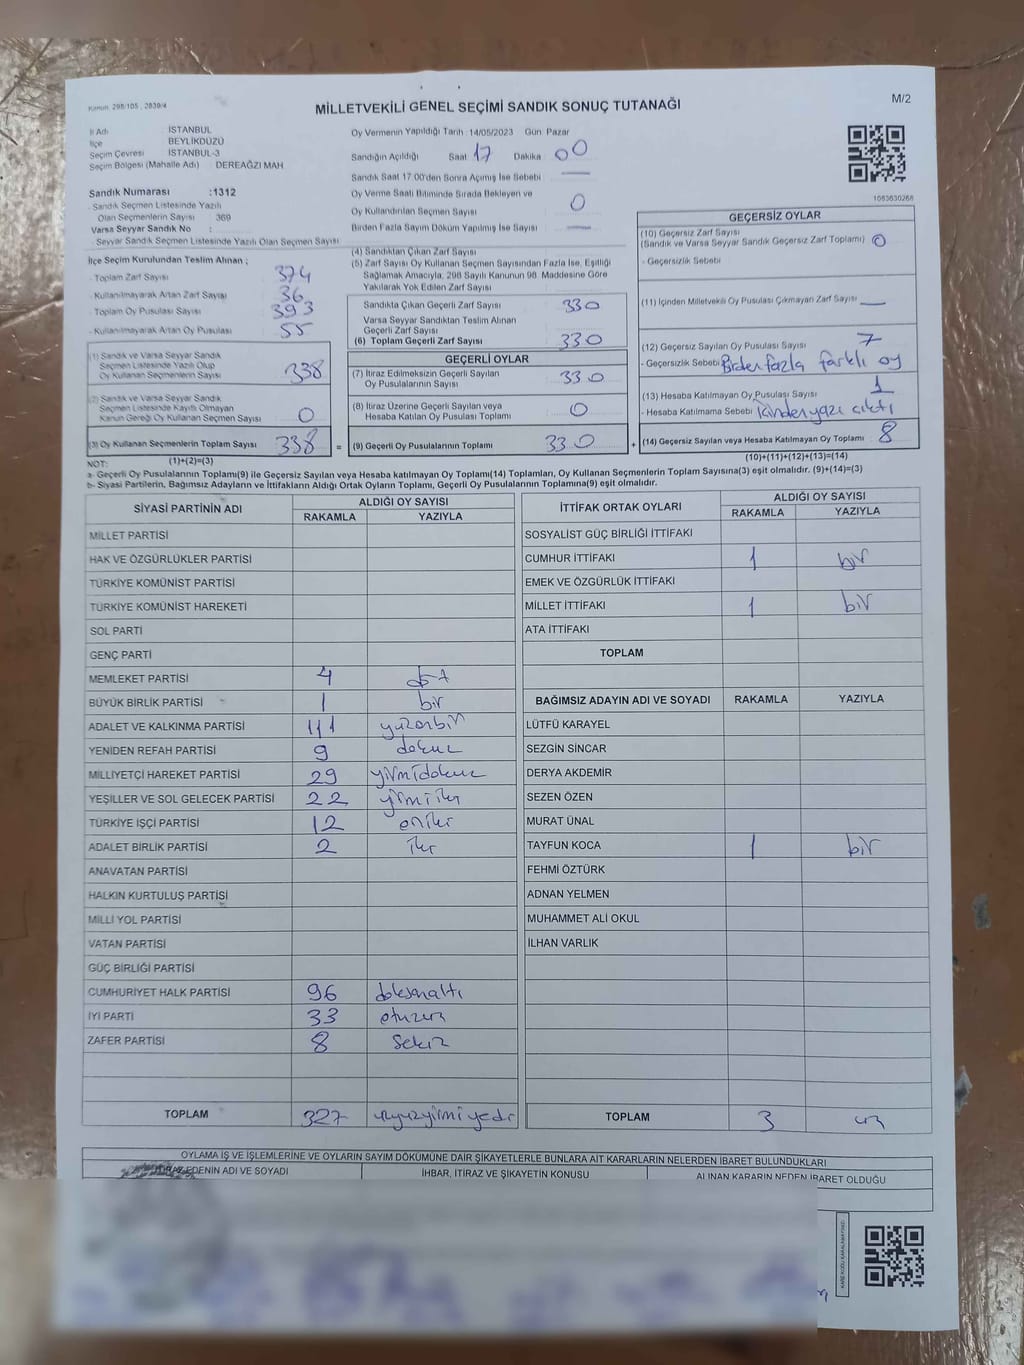 Kanun: 298/105 , 2839/4
MİLLETVEKİLİ GENEL SEÇİMİ SANDIK SONUÇ TUTANAĞI
M/2
İl Adı İSTANBUL
İlçe BEYLİKDÜZÜ
Seçim Çevresi İSTANBUL-3
Seçim Bölgesi (Mahalle Adı) DEREAĞZI MAH
Sandık Numarası :1312
- Sandık Seçmen Listesinde Yazılı
Olan Seçmenlerin Sayısı : 369
Varsa Seyyar Sandık No :
- Seyyar Sandık Seçmen Listesinde Yazılı Olan Seçmen Sayısı
İlçe Seçim Kurulundan Teslim Alınan ;
- Toplam Zarf Sayısı 374
- Kullanılmayarak Artan Zarf Sayısı 36
- Toplam Oy Pusulası 393
- Kullanılmayarak Artan Oy Pusulası 55
(1) Sandık ve Varsa Seyyar Sandık
Seçmen Listesinde Yazılı Olup
Oy Kullanan Seçmenlerin Sayısı 338
(2) Sandık ve Varsa Seyyar Sandık
Seçmen Listesinde Kayıtlı Olmayan
Kanun Gereği Oy Kullanan Seçmen Sayısı 0
(3) Oy Kullanan Seçmenlerin Toplam Sayısı 338 =
Oy Vermenin Yapıldığı Tarih :14/05/2023 Gün: Pazar
Sandığın Açıldığı Saat 17 Dakika 00
Sandık Saat 17.00'den Sonra Açılmış İse Sebebi —
Oy Verme Saati Bitiminde Sırada Bekleyen ve
Oy Kullandırılan Seçmen Sayısı 0
Birden Fazla Sayım Döküm Yapılmış İse Sayısı —
(4) Sandıktan Çıkan Zarf Sayısı
(5) Zarf Sayısı Oy Kullanan Seçmen Sayısından Fazla İse, Eşitliği
Sağlamak Amacıyla, 298 Sayılı Kanunun 98. Maddesine Göre
Yakılarak Yok Edilen Zarf Sayısı
Sandıkta Çıkan Geçerli Zarf Sayısı 330
Varsa Seyyar Sandıktan Teslim Alınan
Geçerli Zarf Sayısı
(6) Toplam Geçerli Zarf Sayısı 330
GEÇERLİ OYLAR
(7) İtiraz Edilmeksizin Geçerli Sayılan
Oy Pusulalarının Sayısı 330
(8) İtiraz Üzerine Geçerli Sayılan veya
Hesaba Katılan Oy Pusulası Toplamı 0
(9) Geçerli Oy Pusulalarının Toplamı 330 +
1083630268
GEÇERSİZ OYLAR
(10) Geçersiz Zarf Sayısı
(Sandık ve Varsa Seyyar Sandık Geçersiz Zarf Toplamı) 0
- Geçersizlik Sebebi
(11) İçinden Milletvekili Oy Pusulası Çıkmayan Zarf Sayısı —
(12) Geçersiz Sayılan Oy Pusulası Sayısı 7
- Geçersizlik Sebebi Birden fazla farklı oy
(13) Hesaba Katılmayan Oy Pusulası Sayısı 1
- Hesaba Katılmama Sebebi İçinden yazı çıktı
(14) Geçersiz Sayılan veya Hesaba Katılmayan Oy Toplamı 8
NOT: (1)+(2)=(3) (10)+(11)+(12)+(13)=(14)
a- Geçerli Oy Pusulalarının Toplamı(9) ile Geçersiz Sayılan veya Hesaba katılmayan Oy Toplamı(14) Toplamları, Oy Kullanan Seçmenlerin Toplam Sayısına(3) eşit olmalıdır. (9)+(14)=(3)
b- Siyasi Partilerin, Bağımsız Adayların ve İttifakların Aldığı Ortak Oyların Toplamı, Geçerli Oy Pusulalarının Toplamına(9) eşit olmalıdır.
SİYASİ PARTİNİN ADI ALDIĞI OY SAYISI
RAKAMLA YAZIYLA
MİLLET PARTİSİ
HAK VE ÖZGÜRLÜKLER PARTİSİ
TÜRKİYE KOMÜNİST PARTİSİ
TÜRKİYE KOMÜNİST HAREKETİ
SOL PARTİ
GENÇ PARTİ
MEMLEKET PARTİSİ 4 dört
BÜYÜK BİRLİK PARTİSİ 1 bir
ADALET VE KALKINMA PARTİSİ 111 yüzonbir
YENİDEN REFAH PARTİSİ 9 dokuz
MİLLİYETÇİ HAREKET PARTİSİ 29 yirmidokuz
YEŞİLLER VE SOL GELECEK PARTİSİ 22 yirmiiki
TÜRKİYE İŞÇİ PARTİSİ 12 oniki
ADALET BİRLİK PARTİSİ 2 iki
ANAVATAN PARTİSİ
HALKIN KURTULUŞ PARTİSİ
MİLLİ YOL PARTİSİ
VATAN PARTİSİ
GÜÇ BİRLİĞİ PARTİSİ
CUMHURİYET HALK PARTİSİ 96 doksanaltı
İYİ PARTİ 33 otuzüç
ZAFER PARTİSİ 8 sekiz
TOPLAM 327 üçyüzyirmiyedi
İTTİFAK ORTAK OYLARI ALDIĞI OY SAYISI
RAKAMLA YAZIYLA
SOSYALİST GÜÇ BİRLİĞİ İTTİFAKI
CUMHUR İTTİFAKI 1 bir
EMEK VE ÖZGÜRLÜK İTTİFAKI
MİLLET İTTİFAKI 1 bir
ATA İTTİFAKI
TOPLAM
BAĞIMSIZ ADAYIN ADI VE SOYADI RAKAMLA YAZIYLA
LÜTFÜ KARAYEL
SEZGİN SİNCAR
DERYA AKDEMİR
SEZEN ÖZEN
MURAT ÜNAL
TAYFUN KOCA 1 bir
FEHMİ ÖZTÜRK
ADNAN YELMEN
MUHAMMET ALİ OKUL
İLHAN VARLIK
TOPLAM 3 üç
OYLAMA İŞ VE İŞLEMLERİNE VE OYLARIN SAYIM DÖKÜMÜNE DAİR ŞİKAYETLERLE BUNLARA AİT KARARLARIN NELERDEN İBARET BULUNDUKLARI
İTİRAZ EDENİN ADI VE SOYADI İHBAR, İTİRAZ VE ŞİKAYETİN KONUSU ALINAN KARARIN NEDEN İBARET OLDUĞU